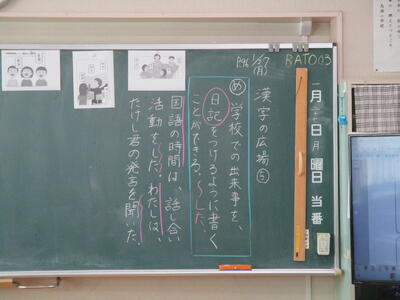 RATO03
P96 1/27(月)
一月二十日月曜日 当番
漢字の広場⑤
め 学校での出来事を、
日記をつけるように書く
ことができる。〜した。
国語の時間は、話し合い
活動をした。わたしは、
たけし君の発言を聞いた。